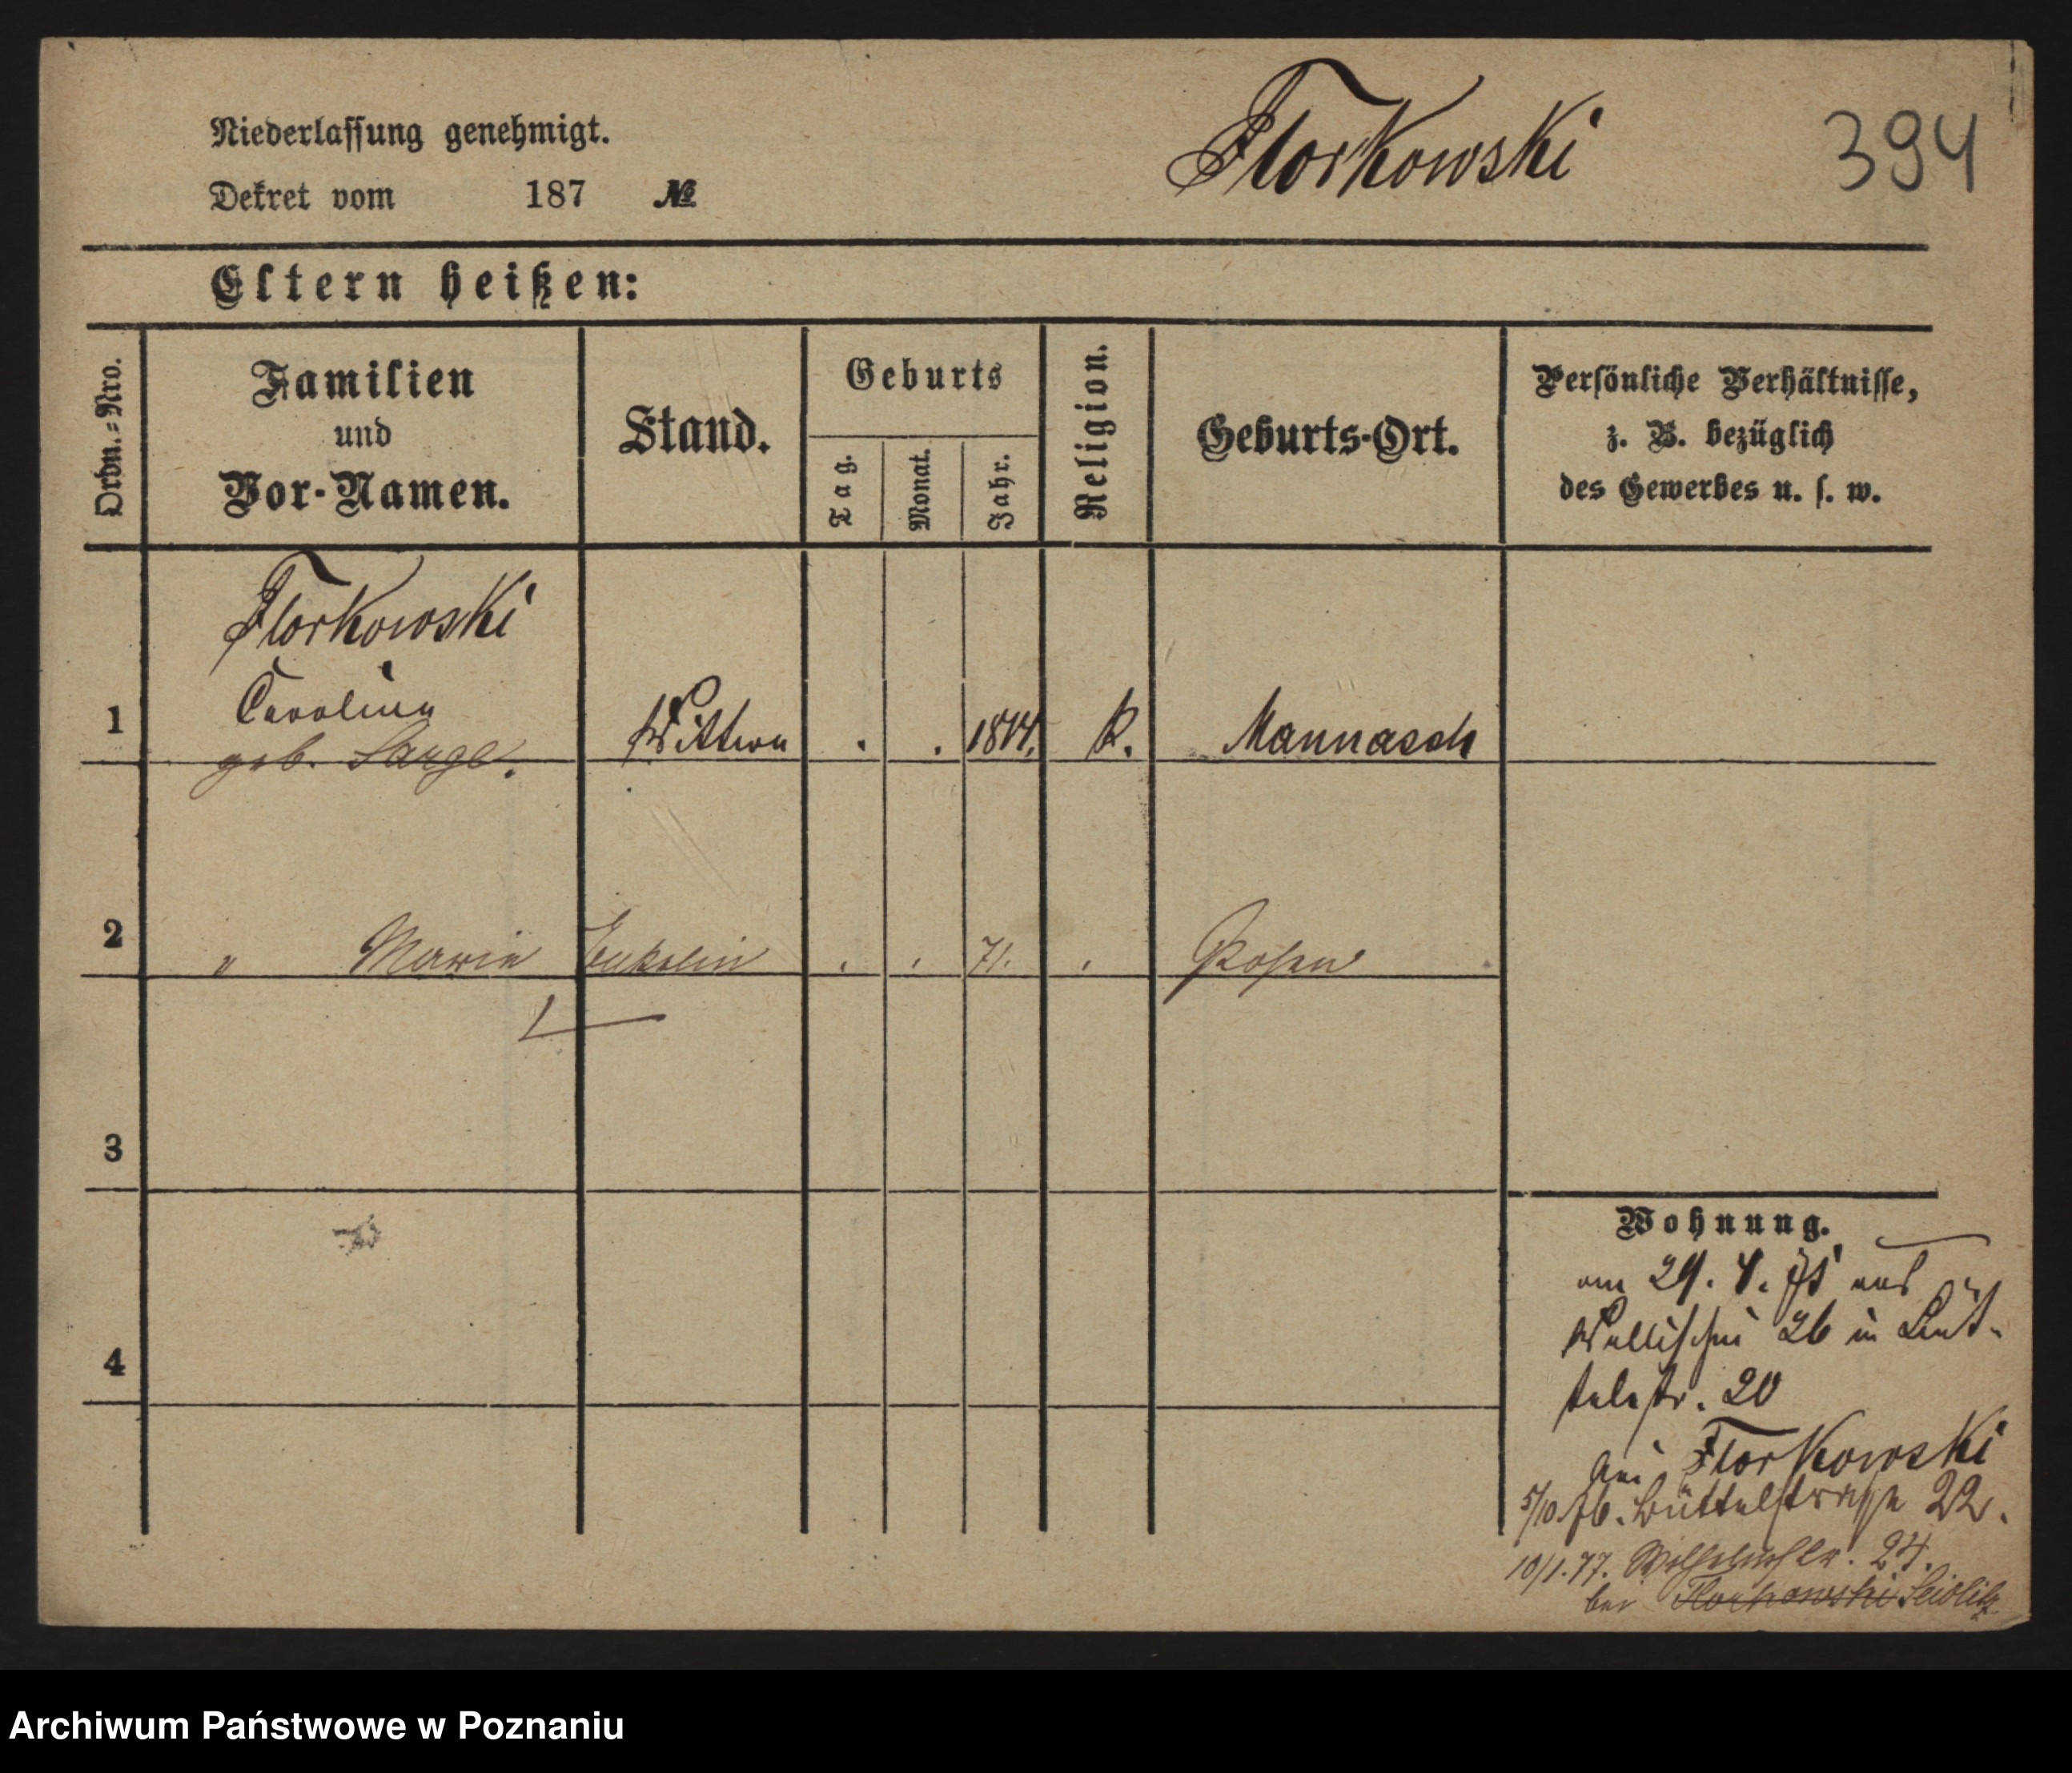 Niederlassung genehmigt.
Dekret vom 187 №
Florkowski
394
Eltern heißen:
Ordn.-Nro.
Familien
und
Vor-Namen.
Stand.
Geburts
Tag.
Monat.
Jahr.
Religion.
Geburts-Ort.
Persönliche Verhältnisse,
z. B. bezüglich
des Gewerbes u. s. w.
Florkowski
Carolina
geb. Lange.
1 Wittwe . . 1814. K. Mannasch
2 " Marie Enkelin . . 71. . Posen
3
4
Wohnung.
am 29. 4. 75 aus
Wallischei 26 in Büt-
telstr. 20
bei Florkowski
5/10 76. Büttelstrasse 22.
10/1.77. Wilhelmstr. 24.
bei Florkowski Seidlitz
Archiwum Państwowe w Poznaniu